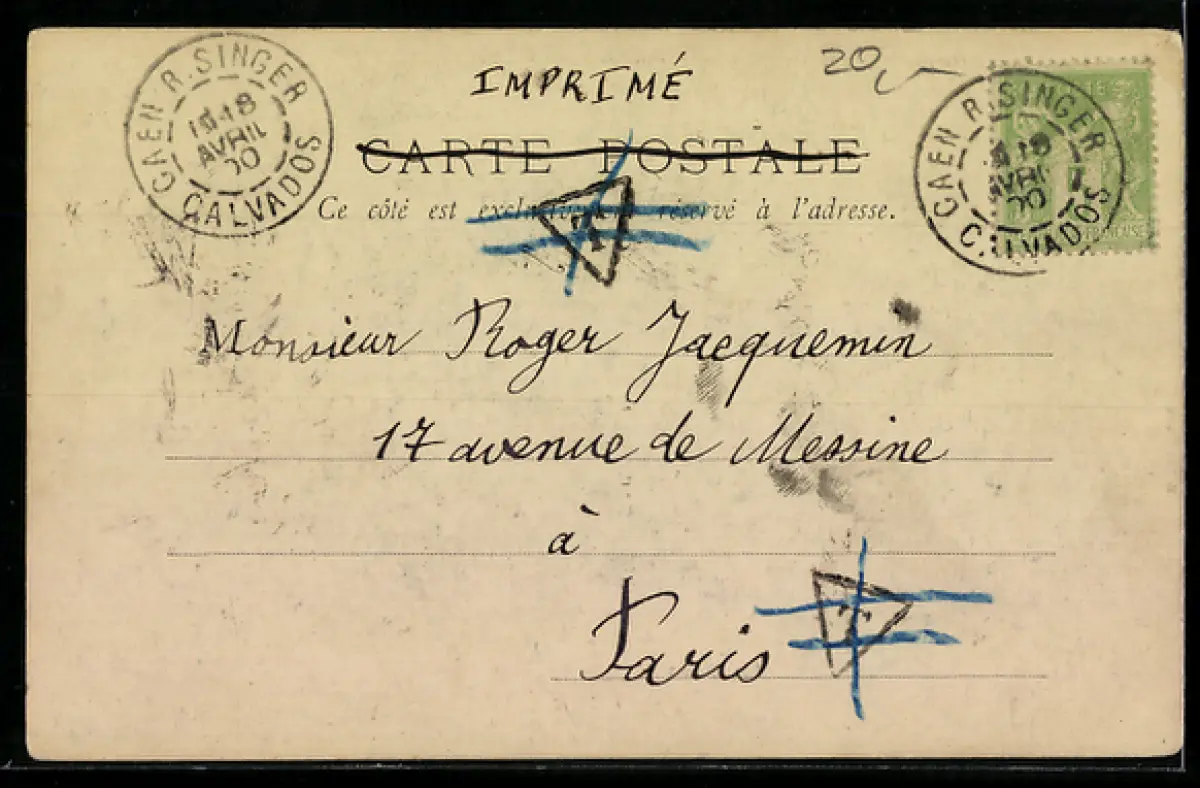 CAEN R. SINGER
18
AVRIL
00
CALVADOS
IMPRIMÉ
20
CAEN R. SINGER
18
AVRIL
00
CALVADOS
CARTE POSTALE
Ce côté est exclusivement réservé à l'adresse.
T
Monsieur Roger Jacquemin
17 avenue de Messine
à
Paris
T